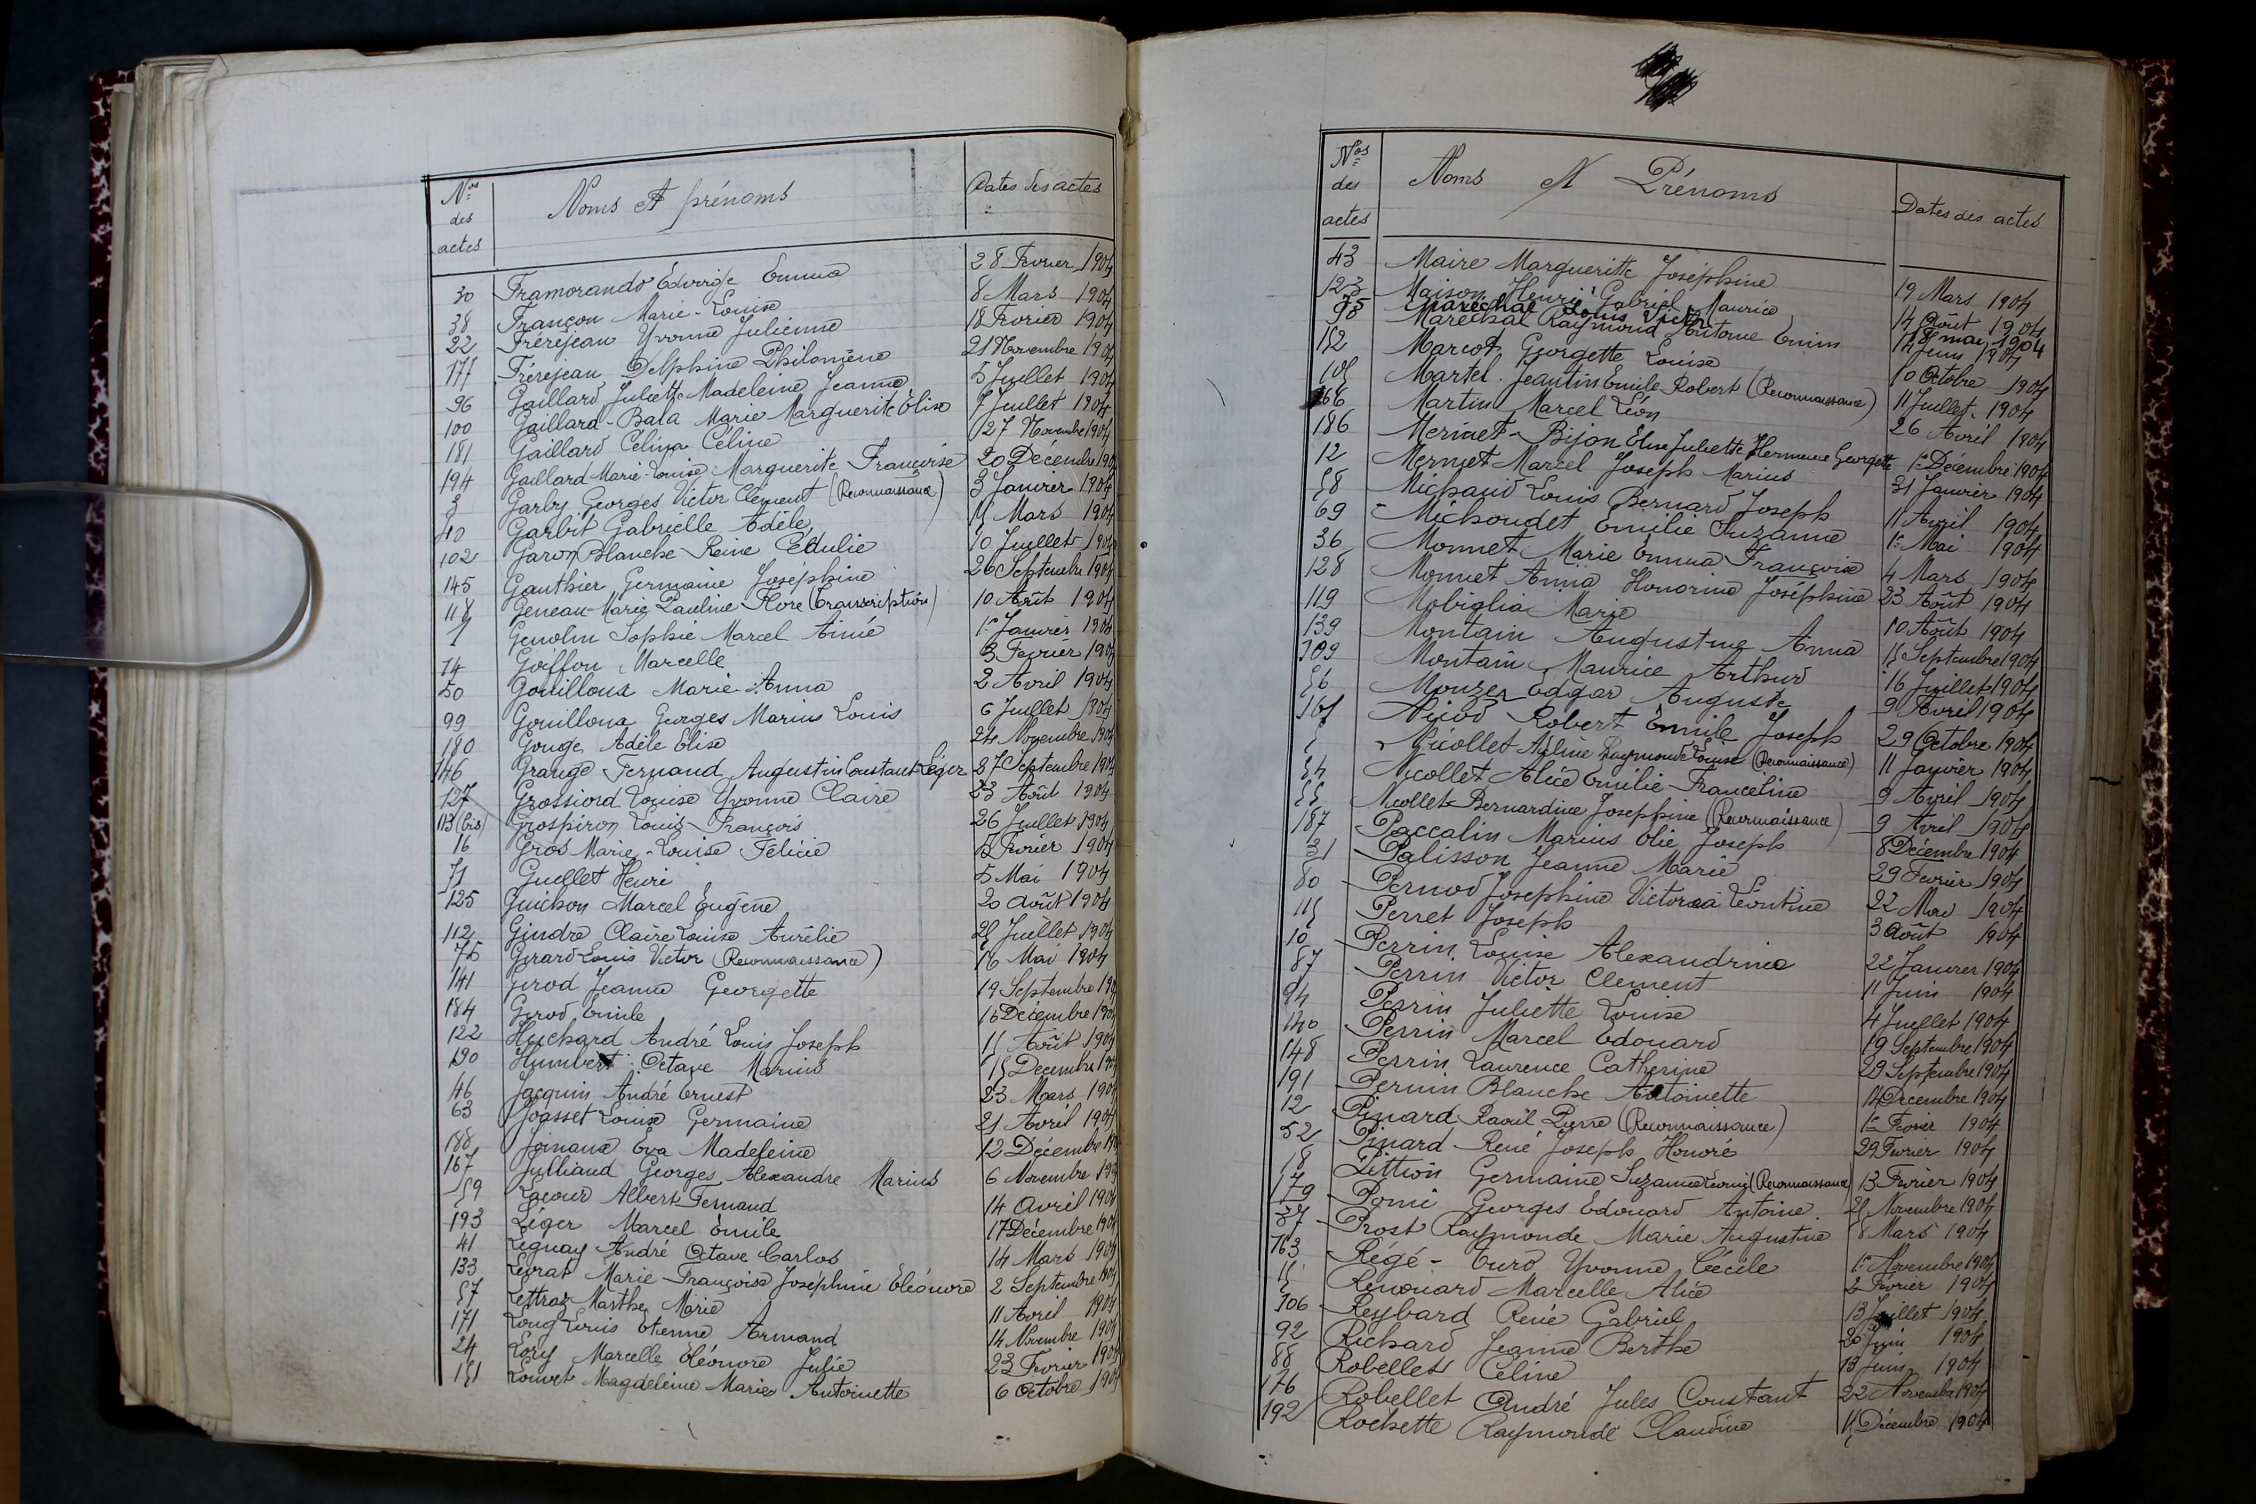 Nos des actes Noms et prénoms Dates des actes
30 Framorando Edwige Emma 28 Février 1904
38 Françon Marie-Louise 8 Mars 1904
22 Fréréjean Yvonne Julienne 18 Février 1904
177 Fréréjean Delphine Philomène 21 Novembre 1904
96 Gaillard Juliette Madeleine Jeanne 5 Juillet 1904
100 Gaillard-Bala Marie Marguerite Elise 7 Juillet 1904
181 Gaillard Célina Céline 27 Novembre 1904
194 Gaillard Marie-Louise Marguerite Françoise 20 Décembre 190
3 Garby Georges Victor Clément (Reconnaissance) 3 Janvier 1904
40 Garbit Gabrielle Adèle Mars 1904
102 Garon Blanche Reine Edulie 10 Juillet 1904
145 Gauthier Germaine Joséphine 26 Septembre 1904
118 Geneau Marie Pauline Flore (Transcription) 10 Août 1904
1 Genolin Sophie Marcel Aimée 1er Janvier 1904
14 Goiffon Marcelle 3 Février 1904
50 Gouilloux Marie-Anna 2 Avril 1904
99 Gouilloux Georges Marius Louis 6 Juillet 1904
180 Gouge Adèle Elise 24 Novembre 1904
146 Grange Fernand Augustin Constant Léger 27 Septembre 1904
127 Grossiord Louise Yvonne Claire 23 Août 1904
113 (bis) Grospiron Louis François 26 Juillet 1904
16 Gros Marie-Louise Félicie Février 1904
71 Guellet Henri 5 Mai 1904
125 Guichon Marcel Eugène 20 août 1904
112 Gindre Claire Louise Aurélie 25 Juillet 1904
75 Girard Louis Victor (Reconnaissance) 16 Mai 1904
141 Girod Jeanne Georgette 19 Septembre 190
184 Girod Emile Décembre 190
122 Huchard André Louis Joseph 15 Août 1904
190 Humbert Octave Marius 15 Décembre 1904
46 Jacquin André Ernest 23 Mars 1904
63 Joasset Louise Germaine 21 Avril 1904
188 Joinana Eva Madeleine 12 Décembre 190
167 Julliand Georges Alexandre Marius 6 Novembre 1904
59 Lacour Albert Fernand 14 Avril 1904
193 Léger Marcel Emile 17 Décembre 1904
41 Liguay André Octave Carlos 14 Mars 1904
133 Leyrat Marie Françoise Joséphine Eléonore 2 Septembre 1904
57 Lettraz Marthe Marie 11 Avril 1904
171 Long Louis Etienne Armand 14 Novembre 1904
24 Lory Marcelle Eléonore Julie 23 Février 1904
151 Louvet Magdeleine Marie Antoinette 6 Octobre 1904
Nos des actes Noms et Prénoms Dates des actes
43 Maire Marguerite Joséphine 19 Mars 1904
123 Maison Henri Gabriel Maurice 14 Août 1904
Maréchal Louis Victor mai 1904
98 Maréchal Raymond Antoine Emin Juin 1904
152 Marcot Georgette Louise 10 Octobre 1904
105 Martel Jeantin Emile Robert (Reconnaissance) 11 Juillet 1904
66 Martin Marcel Léon 26 Avril 1904
186 Merinet-Bijon Elise Juliette Hermence Georgette 1er Décembre 1904
12 Mermet Marcel Joseph Marius 31 Janvier 1904
58 Michaud Louis Bernard Joseph 11 Avril 1904
69 Michoudet Emilie Suzanne 1er Mai 1904
36 Monnet Marie Emma Françoise 4 Mars 1904
128 Monnet Anna Honorine Joséphine 23 Août 1904
119 Mobiglia Marie 10 Août 1904
139 Montain Augustine Anna 15 Septembre 1904
109 Montain Maurice Arthur 16 Juillet 1904
56 Mouzer Edgar Auguste 9 Avril 1904
161 Nicod Robert Emile Joseph 29 Octobre 1904
Nicollet Raymonde Louise (Reconnaissance) 11 Janvier 1904
54 Nicollet Alice Emilie Franceline 9 Avril 1904
55 Nicollet Bernardine Joséphine (Reconnaissance) 9 Avril 1904
187 Paccalin Marius Olie Joseph 8 Décembre 1904
31 Palisson Jeanne Marie 29 Février 1904
80 Pernod Joséphine Victoria Léontine 22 Mai 1904
115 Perret Joseph 3 Août 1904
10 Perrin Louise Alexandrine 22 Janvier 1904
87 Perrin Victor Clément 11 Juin 1904
94 Perrin Juliette Louise 4 Juillet 1904
140 Perrin Marcel Edouard 19 Septembre 1904
148 Perrin Laurence Catherine 29 Septembre 1904
191 Pernin Blanche Antoinette Décembre 1904
12 Pinard Raoul Pierre (Reconnaissance) 1er Février 1904
32 Pinard René Joseph Honoré 29 Février 1904
18 Pittion Germaine Suzanne (Reconnaissance) 13 Février 1904
179 Pomi Georges Edouard Antoine Novembre 1904
37 Prost Raymonde Marie Augustine 8 Mars 1904
163 Régé-Turo Yvonne Cécile 1er Novembre 1904
15 Renouard Marcelle Alice 2 Février 1904
106 Reybard René Gabriel 13 Juillet 1904
92 Richard Jeanne Berthe 30 Juin 1904
88 Robellet Céline 13 Juin 1904
176 Robellet André Jules Constant 22 Novembre 1904
192 Rochette Raymonde Claudine Décembre 1904